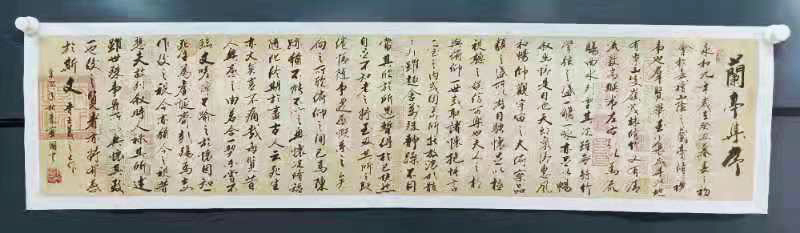 蘭亭集序
永和九年歲在癸丑暮春之初
會於會稽山陰之蘭亭修禊
事也群賢畢至少長咸集此地
有崇山峻嶺茂林修竹又有清
流激湍映帶左右引以為流
觴曲水列坐其次雖無絲竹
管弦之盛一觴一詠亦足以暢
敘幽情是日也天朗氣清惠風
和暢仰觀宇宙之大俯察品
類之盛所以遊目騁懷足以極
視聽之娛信可樂也夫人之相
與俯仰一世或取諸懷抱悟言
一室之內或因寄所託放浪形骸
之外雖趣舍萬殊靜躁不同
當其欣於所遇暫得於己快然
自足不知老之將至及其所之既
倦情隨事遷感慨係之矣
向之所欣俯仰之間已為陳
跡猶不能不以之興懷況修短
隨化終期於盡古人云死生
亦大矣豈不痛哉每覽昔
人興感之由若合一契未嘗不
臨文嗟悼不能喻之於懷固知
一死生為虛誕齊彭殤為妄
作後之視今亦猶今之視昔
悲夫故列敘時人錄其所述
雖世殊事異所以興懷其致
一也後之覽者亦將有感
於斯文